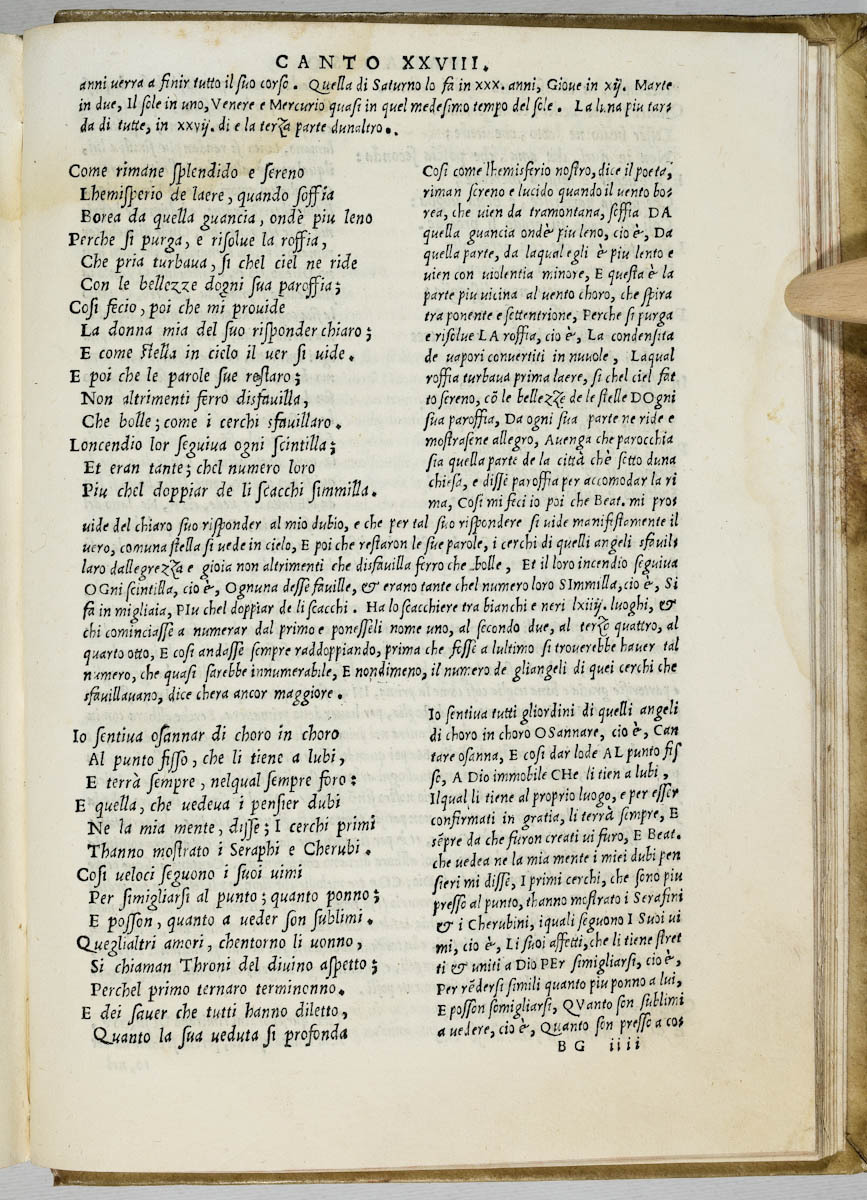 CANTO XXVIII.
anni uerra a finir tutto il suo corso. Quella di Saturno lo fa in XXX. anni, Gioue in xij. Marte
in due, Il sole in uno, Venere e Mercurio quasi in quel medesimo tempo del sole. La luna piu tar⸗
da di tutte, in XXVij. di e la terza parte dunaltro.
Come rimane splendido e sereno
Lhemisperio de laere, quando soffia
Borea da quella guancia, ondè piu leno
Perche si purga, e risolue la roffia,
Che pria turbaua, si chel ciel ne ride
Con le bellezze dogni sua paroffia;
Cosi fecio, poi che mi prouide
La donna mia del suo risponder chiaro;
E come stella in cielo il uer si uide.
E poi che le parole sue restaro;
Non altrimenti ferro disfauilla,
Che bolle; come i cerchi sfauillaro.
Loncendio lor seguiua ogni scintilla;
Et eran tante; chel numero loro
Piu chel doppiar de li scacchi simmilla.
Cosi come lhemisferio nostro, dice il poeta,
riman sereno e lucido quando il uento bo⸗
rea, che uien da tramontana, soffia DA
quella guancia ondè piu leno, cio è, Da
quella parte, da laqual egli è piu lento e
uien con uiolentia minore, E questa è la
parte piu uicina al uento choro, che spira
tra ponente e settentrione, Perche si purga
e risolue LA roffia, cio è, La condensita
de uapori conuertiti in nuuole, Laqual
roffia turbaua prima laere, si chel ciel fat⸗
to sereno, cō le bellezze de le stelle DOgni
sua paroffia, Da ogni sua parte ne ride e
mostrasene allegro, Auenga che parocchia
sia quella parte de la città chè sotto duna
chiesa, e disse paroffia per accomodar la ri
ma, Cosi mi feci io poi che Beat. mi pro⸗
uide del chiaro suo risponder al mio dubio, e che per tal suo rispondere si uide manifestamente il
uero, comuna stella si uede in cielo, E poi che restaron le sue parole, i cerchi di quelli angeli sfauil⸗
laro dallegrezza e gioia non altrimenti che disfauilla ferro che bolle, Et il loro incendio seguiua
OGni scintilla, cio è, Ognuna desse fauille, & erano tante chel numero loro SImmilla, cio è, Si
fa in migliaia, PIu chel doppiar de li scacchi. Ha lo scacchiere tra bianchi e neri lxiiij. luoghi, &
chi cominciasse a numerar dal primo e ponesseli nome uno, al secondo due, al terzo quattro, al
quarto otto, E cosi andasse sempre raddoppiando, prima che fosse a lultimo si trouerebbe hauer tal
numero, che quasi sarebbe innumerabile, E nondimeno, il numero de gliangeli di quei cerchi che
sfauillauano, dice chera ancor maggiore.
Io sentiua osannar di choro in choro
Al punto fisso, che li tiene a lubi,
E terrà sempre, nelqual sempre foro:
E quella, che uedeua i pensier dubi
Ne la mia mente, disse; I cerchi primi
Thanno mostrato i Seraphi e Cherubi.
Cosi ueloci seguono i suoi uimi
Per simigliarsi al punto; quanto ponno;
E posson, quanto a ueder son sublimi.
Queglialtri amori, chentorno li uonno,
Si chiaman Throni del diuino aspetto;
Perchel primo ternaro terminonno.
E dei sauer che tutti hanno diletto,
Quanto la sua ueduta si profonda
Io sentiua tutti gliordini di quelli angeli
di choro in choro OSannare, cio è, Can
tare osanna, E cosi dar lode AL punto fis
so, A Dio immobile CHe li tien a lubi,
Ilqual li tiene al proprio luogo, e per esser
confirmati in gratia, li terrà sempre, E
sēpre da che furon creati ui furo, E Beat.
che uedea ne la mia mente i miei dubi pen
sieri mi disse, I primi cerchi, che sono piu
presso al punto, thanno mostrato i Serafini
& i Cherubini, iquali seguono I Suoi ui
mi, cio è, Li suoi affetti, che li tiene stret
ti & uniti a Dio PEr simigliarsi, cio è,
Per rēdersi simili quanto piu ponno a lui,
E posson somigliarsi, QVanto son sublimi
a uedere, cio è, Quanto son presso a co⸗
BG iiii